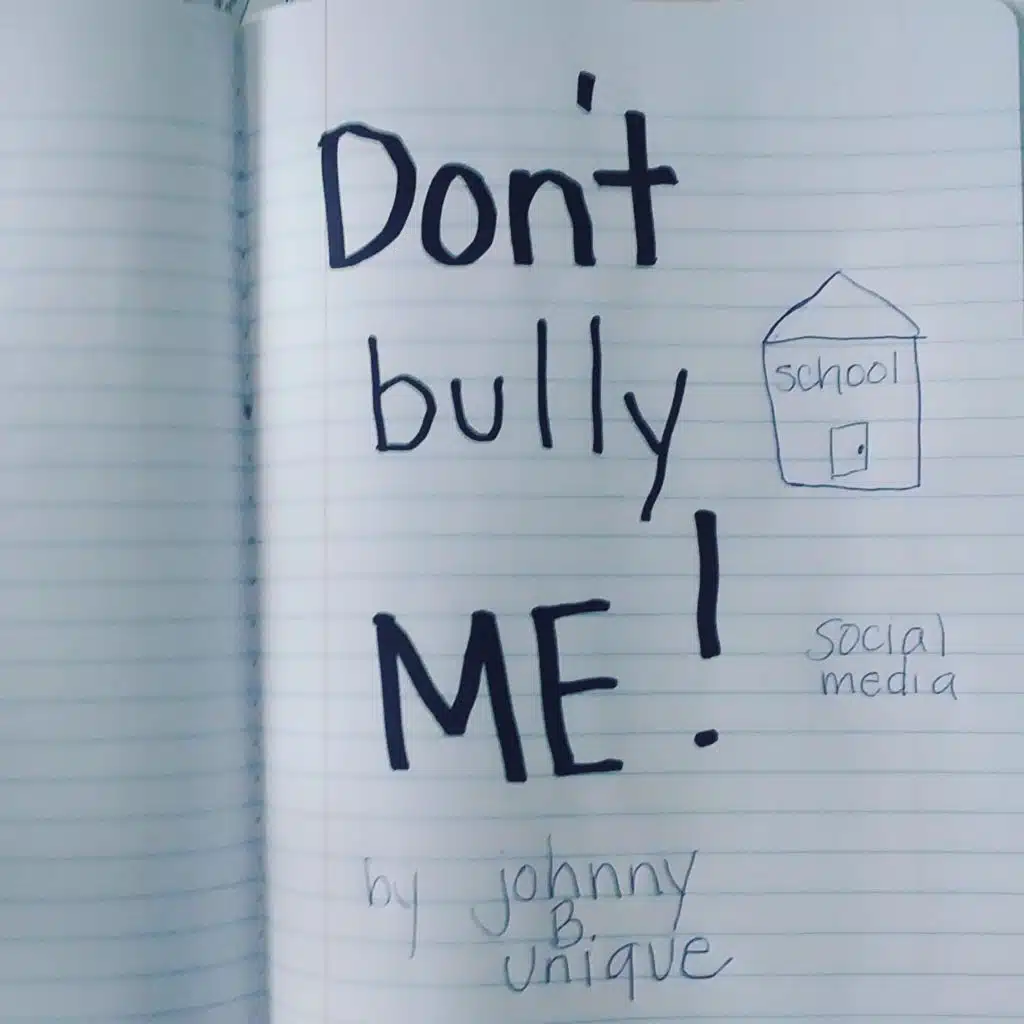 Don't
bully
school
ME!
social
media
by johnny
B.
unique